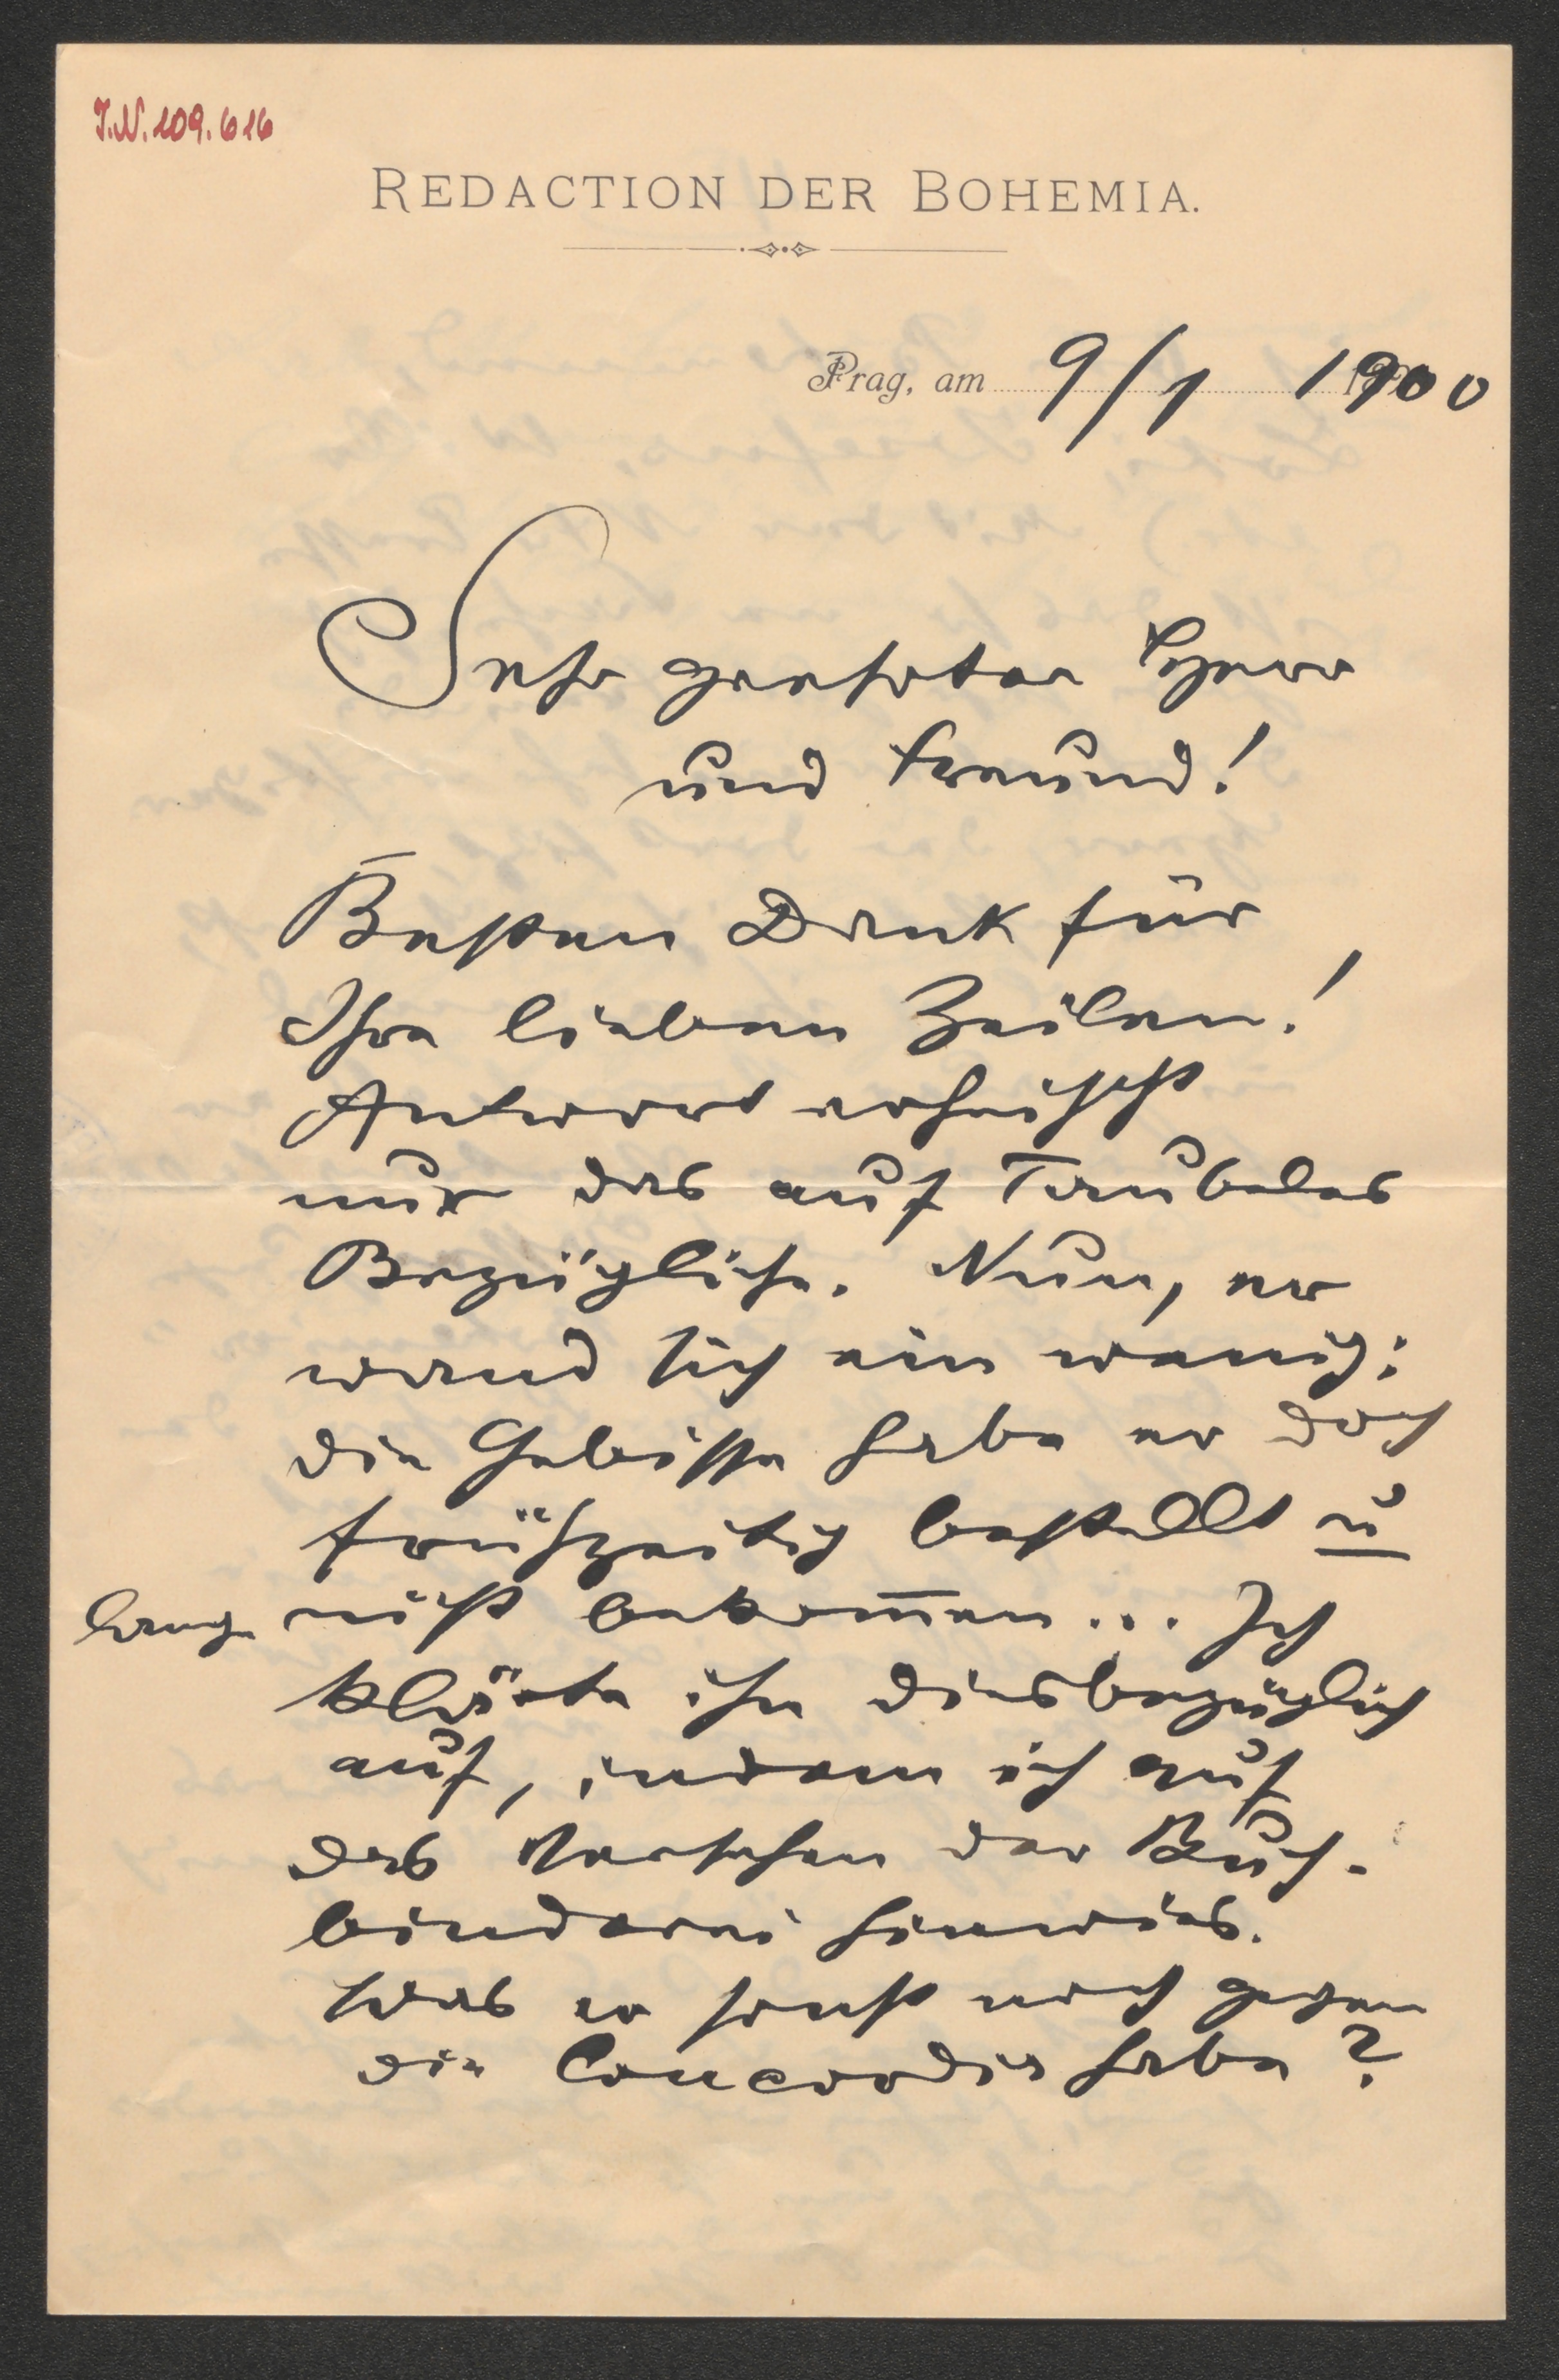 J.N. 109.616
REDACTION DER BOHEMIA.
Prag, am 9/1 1900
Sehr geehrter Herr
und Freund!
Besten Dank für
Ihre lieben Zeilen!
Antwort erheischt
nur das auf Taubeles
Bezügliche. Nun, er
wand sich ein wenig:
die habe er doch
frühzeitig bestellt u
lange nicht bekom̅en... Ich
klärte ihn diesbezüglich
auf, indem ich auf
das Versehen der Buch-
binderei hinwies.
Was er sonst noch gegen
die Concordia habe?